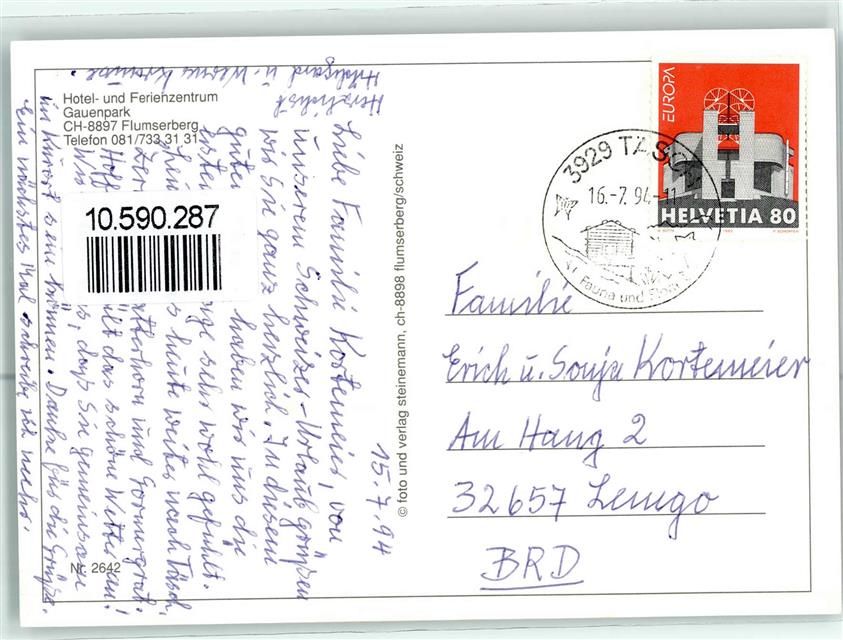 Hotel- und Ferienzentrum
Gauenpark
CH-8897 Flumserberg
Telefon 081/733 31 31
10.590.287
15.7.94
Liebe Familie Kortemeier, von
unserem Schweizer-Urlaub grüßen
wir Sie ganz herzlich. In diesem
guten haben wir uns die
ersten sehr wohl gefühlt.
heute weiter nach Täsch
und Gornergrat.
Hoff das schöne Wetter an!
Wis daß Sie gemeinsam
im Kurort sein können. Danke für die Grüße.
Ein nächstes Mal schreibe ich mehr.
Herzlichst
Hildegard u. Werner
Nr. 2642
© foto und verlag steinemann, ch-8898 flumserberg/schweiz
EUROPA
HELVETIA 80
3929 TÄSCH
16.-7.94.-11
Fauna und
Familie
Erich u. Sonja Kortemeier
Am Hang 2
32657 Lemgo
BRD